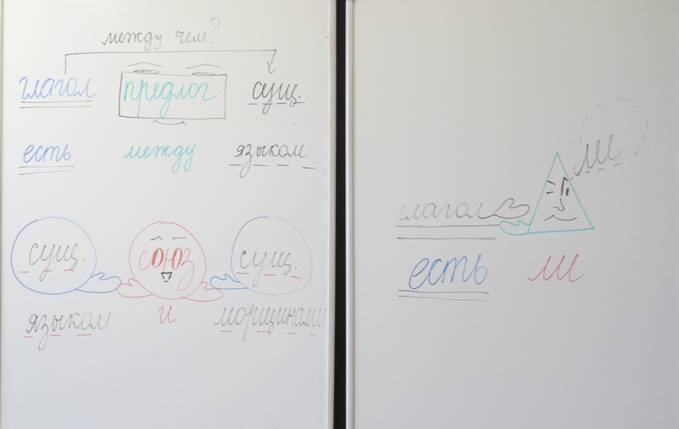 между чем?
глагол предлог сущ.
есть между языком
сущ. союз сущ.
языком и морщинами
ли
глагол
есть ли